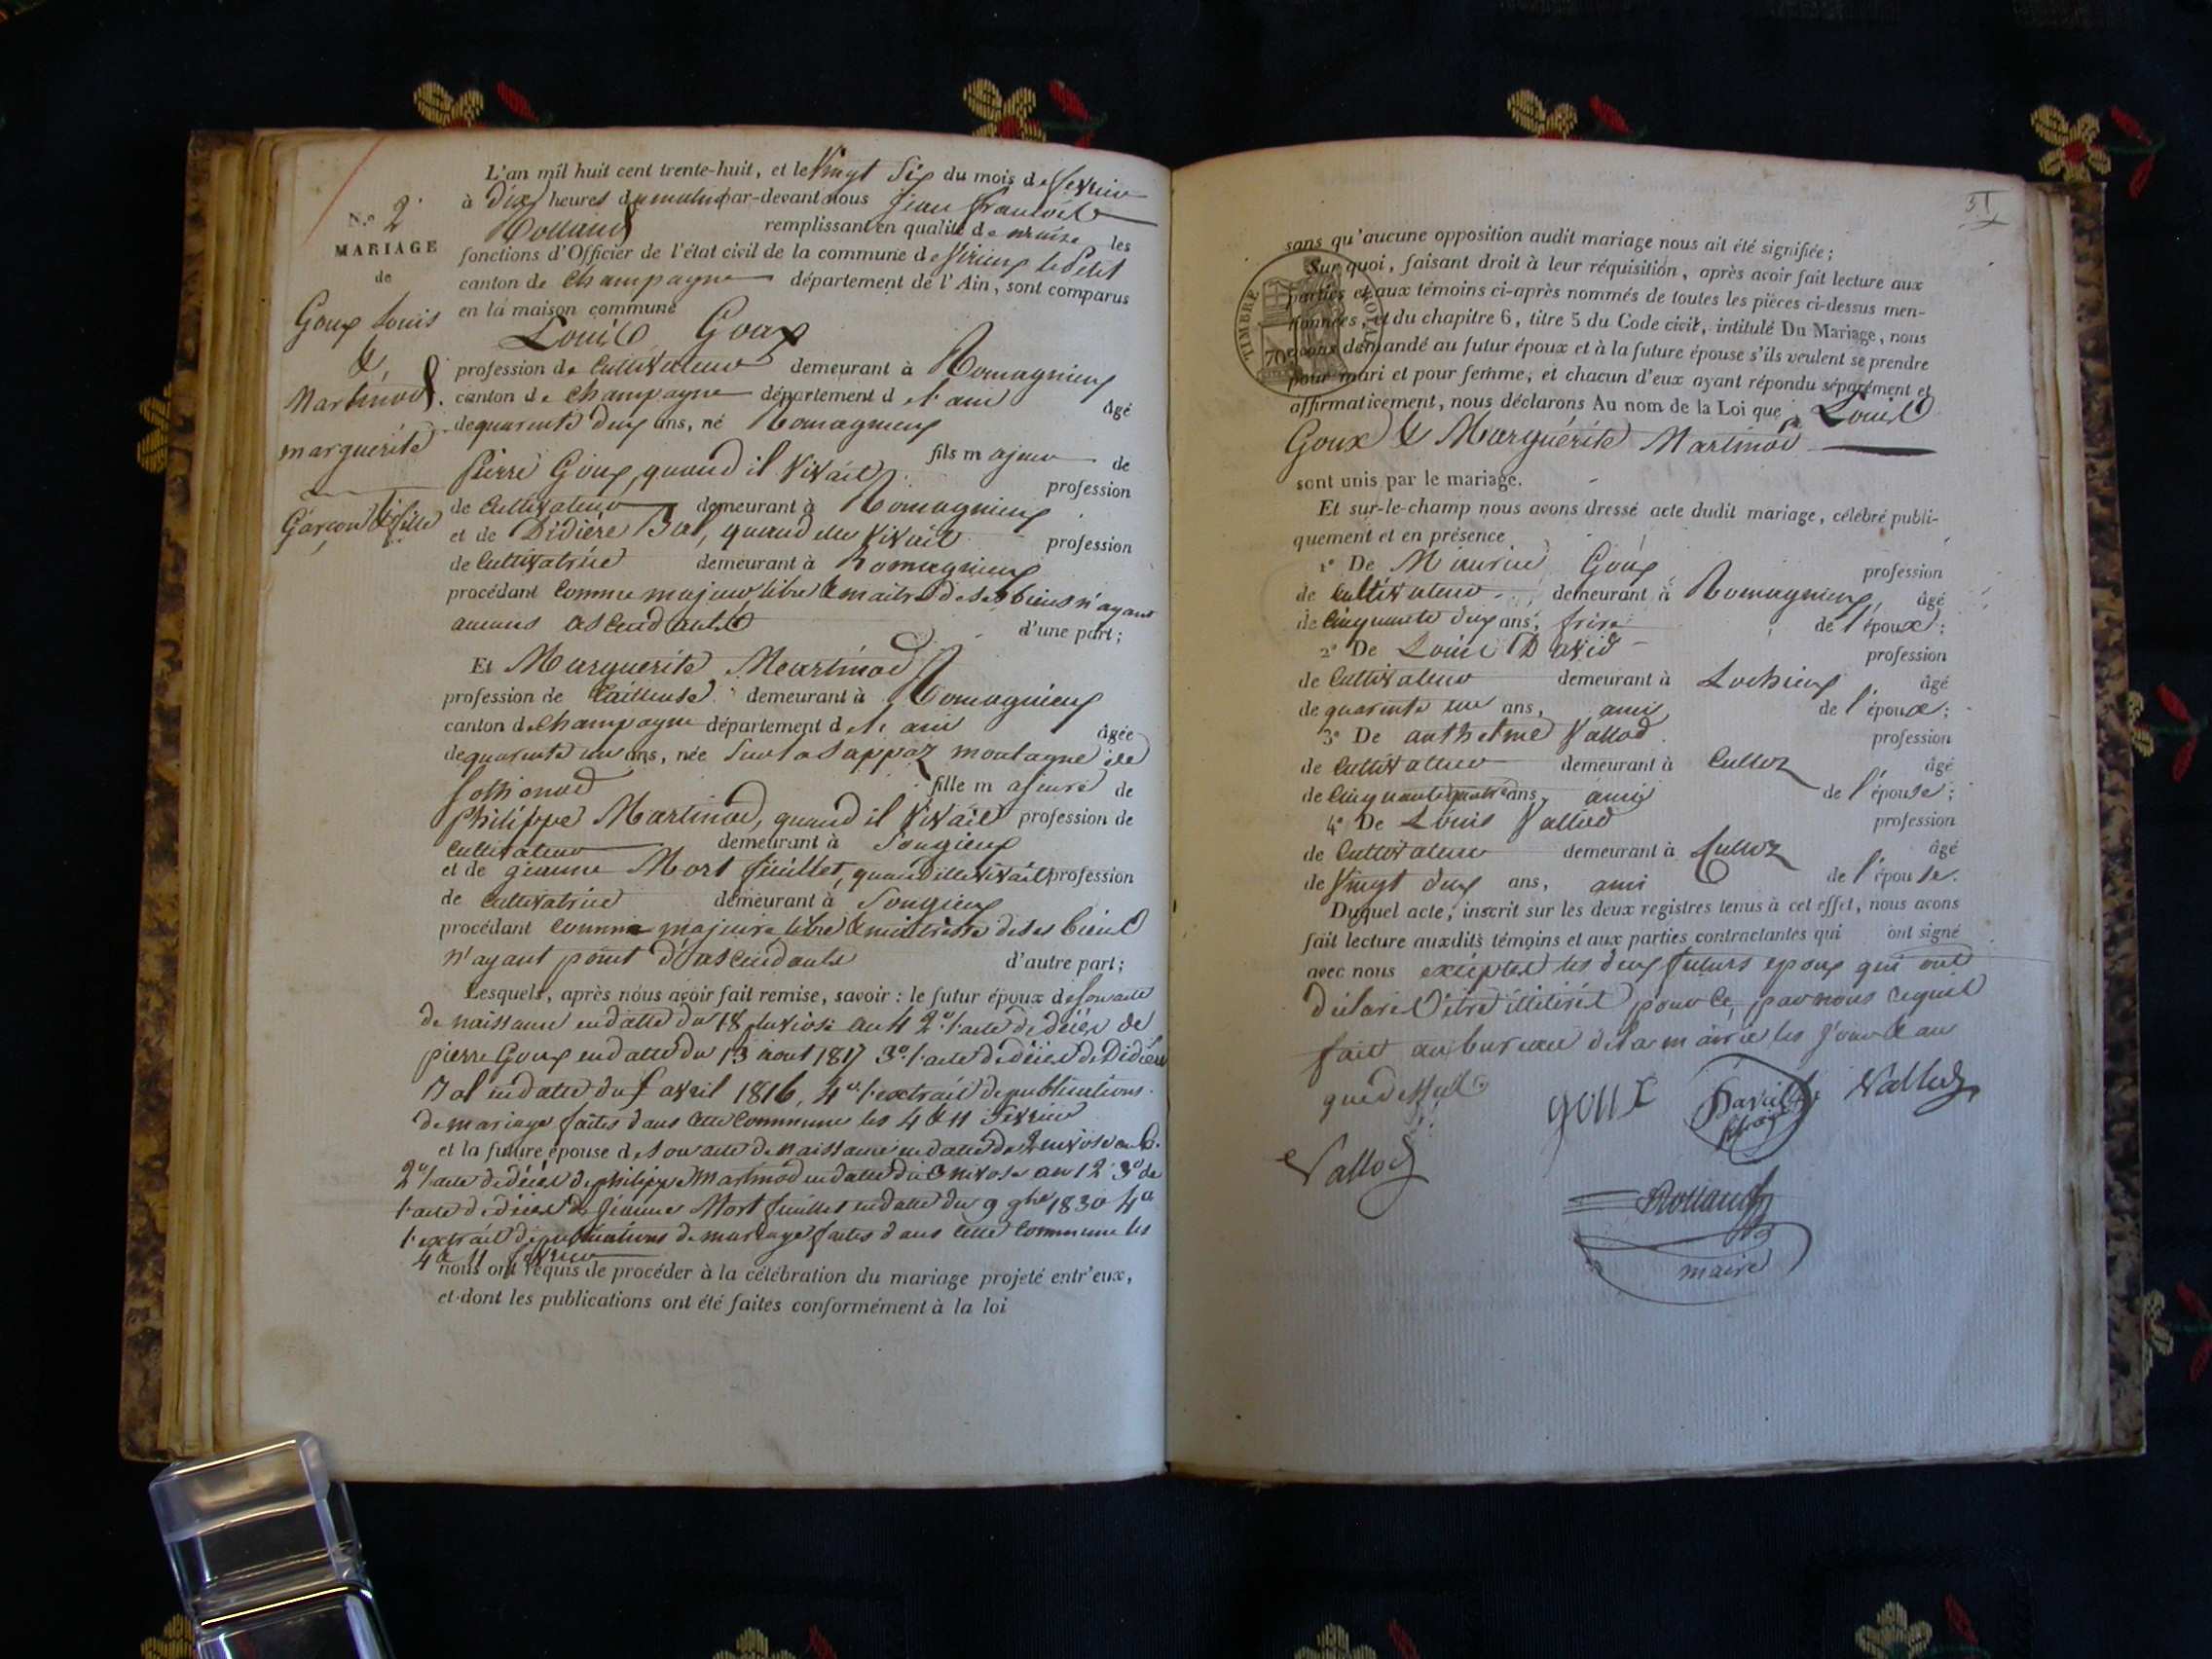 N.° 2
MARIAGE
de
Goux Louis
&
Martinod
marguerite
Garçon & fille
L'an mil huit cent trente-huit, et le Vingt Six du mois de fevrier
à dix heures du matin par-devant nous jean francois
Rolland remplissant en qualité de maire les
fonctions d'Officier de l'état civil de la commune de Virieux le Petit
canton de Champagne département de l'Ain, sont comparus
en la maison commune
Louis Goux
profession de Cultivateur demeurant à Romagnieux
canton de Champagne département de l'ain âgé
de quarente deux ans, né Romagnieux
fils majeur de
Pierre Goux, quand il Vivait profession
de Cultivateur demeurant à Romagnieux
et de Didière Bal, quand elle Vivait profession
de Cultivatrice demeurant à Romagnieux
procédant Comme majeur libre & maitre de ses biens n'ayant
aucuns ascendants d'une part;
Et Marguerite Martinod
profession de tailleuse demeurant à Romagnieux
canton de Champagne département de l'ain âgée
de quarente un ans, née Sur la Sappaz montagne de
Lothonod fille majeure de
Philippe Martinod, quand il Vivait profession de
Cultivateur demeurant à Songieux
et de jeanne Mort feuillet, quand elle Vivait profession
de Cultivatrice demeurant à Songieux
procédant Comme majeure libre & maitresse de ses biens
n'ayant point d'ascendants d'autre part;
Lesquels, après nous avoir fait remise, savoir : le futur époux de son acte
de naissance en datte du 18 pluviose an 4 2° l'acte de décès de
pierre Goux en datte du 13 aout 1817 3° l'acte de décès de Didière
Bal en datte du avril 1816, 4° l'extrait de publications
de mariage faites dans cette Commune les 4 & 11 Fevrier
et la future épouse de son acte de naissance en datte du 2 nivose an 6.
2° l'acte de décès de philippe Martinod en datte du nivose an 12 3° de
l'acte de décès de Jeanne Mort feuillet en datte du 9 9bre 1830 4°
l'extrait de publications de mariage faites dans cette Commune les
4 & 11 fevrier
nous ont requis de procéder à la célébration du mariage projeté entr'eux,
et dont les publications ont été faites conformément à la loi
51
TIMBRE ROYAL
70
sans qu'aucune opposition audit mariage nous ait été signifiée;
Sur quoi, faisant droit à leur réquisition, après avoir fait lecture aux
parties et aux témoins ci-après nommés de toutes les pièces ci-dessus men-
tionnées, et du chapitre 6, titre 5 du Code civil, intitulé Du Mariage, nous
avons demandé au futur époux et à la future épouse s'ils veulent se prendre
pour mari et pour femme; et chacun d'eux ayant répondu séparément et
affirmativement, nous déclarons Au nom de la Loi que Louis
Goux & Marguérite Martinod
sont unis par le mariage.
Et sur-le-champ nous avons dressé acte dudit mariage, célébré publi-
quement et en présence
1° De Maurice Goux profession
de Cultivateur demeurant à Romagnieux, âgé
de Cinquante deux ans, frère de l'époux;
2° De Louis David profession
de Cultivateur demeurant à Lochieux âgé
de quarente un ans, ami de l'époux;
3° De anthelme Vallod profession
de Cultivateur demeurant à Culloz âgé
de Cinquante quatre ans, ami de l'épouse;
4° De Louis Vallod profession
de Cultivateur demeurant à Culloz âgé
de Vingt deux ans, ami de l'épouse.
Duquel acte, inscrit sur les deux registres tenus à cet effet, nous avons
fait lecture auxdits témoins et aux parties contractantes qui ont signé
avec nous exceptés les deux futurs epoux qui ont
déclarés être illitérés pour ce, par nous requis
fait au bureau de la mairie les jour & an
que dessus.
goux David Vallod
Vallod
Rolland
maire